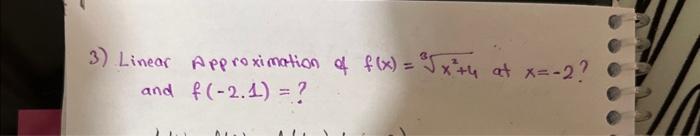 3) Linear Approximation of f(x) = ∛x²+4 at x=-2?
and f(-2.1) = ?